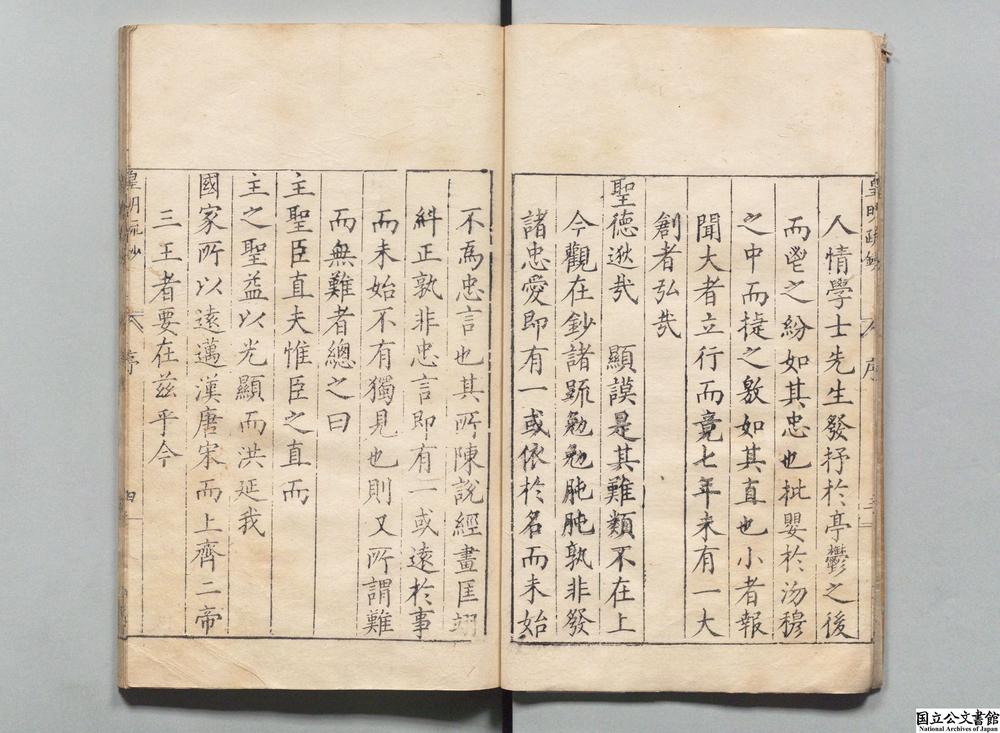 皇明疏鈔
序
人情學士先生發抒於亭鬱之後
而鬯之紛如其忠也批嬰於沕穆
之中而㨗之敫如其直也小者報
聞大者立行而竟七年未有一大
創者弘㢤
聖德逖㢤 顯謨是其難類不在上
今觀在鈔諸䟽勉勉肫肫孰非發
諸忠愛即有一或依於名而未始
不爲忠言也其所陳說經畫匡翊
糾正孰非忠言即有一或遠於事
而未始不有獨見也則又所謂難
而無難者總之曰
主聖臣直夫惟臣之直而
主之聖益以光顯而洪延我
國家所以遠邁漢唐宋而上齊二帝
三王者要在兹乎今
皇明疏鈔
序
四
国立公文書館
National Archives of Japan